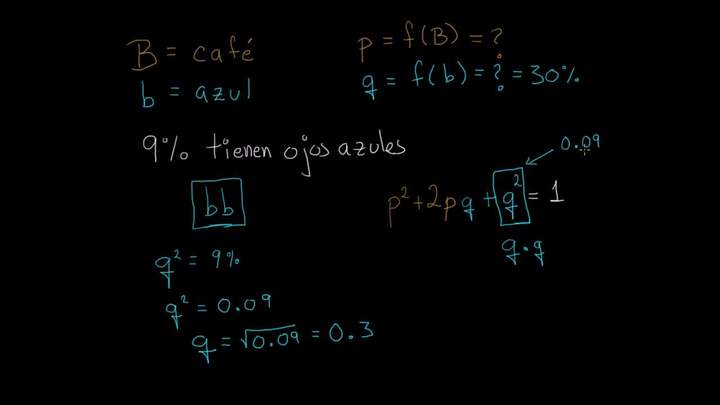 B = café
b = azul
p = f(B) = ?
q = f(b) = ? = 30%
9% tienen ojos azules
0.09
bb
p² + 2pq + q² = 1
q · q
q² = 9%
q² = 0.09
q = √0.09 = 0.3